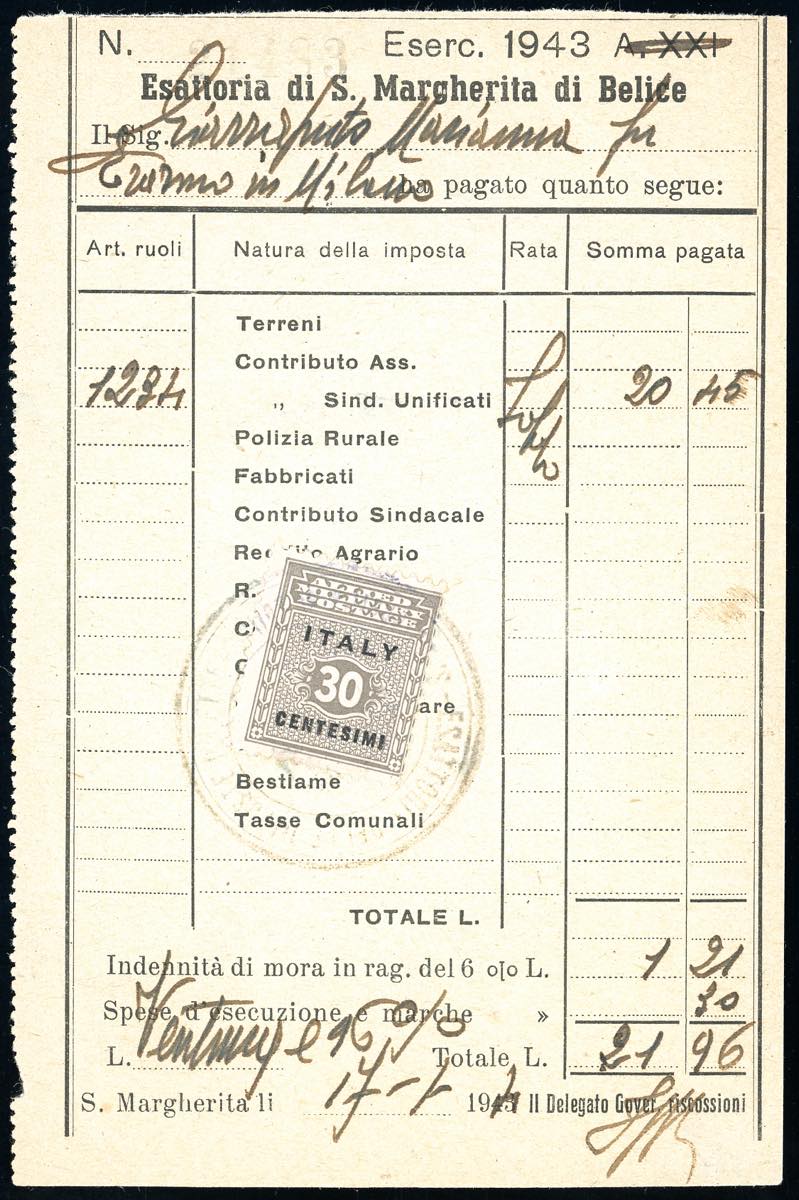 N. Eserc. 1943 A. XXI
Esattoria di S. Margherita di Belice
Il Sig. Marianna fu
in Milano ha pagato quanto segue:
Art. ruoli Natura della imposta Rata Somma pagata
Terreni
Contributo Ass.
1234 „ Sind. Unificati 20 45
Polizia Rurale
Fabbricati
Contributo Sindacale
Agrario
R.
ALLIED
MILITARY
POSTAGE
ITALY
30
CENTESIMI
are
Bestiame
Tasse Comunali
TOTALE L.
Indennità di mora in rag. del 6 o[o L. 1 21
Spese d'esecuzione e marche » 30
L. Ventuno e 96 % Totale L. 21 96
S. Margherita li 17-1 1944 Il Delegato Gover. riscossioni